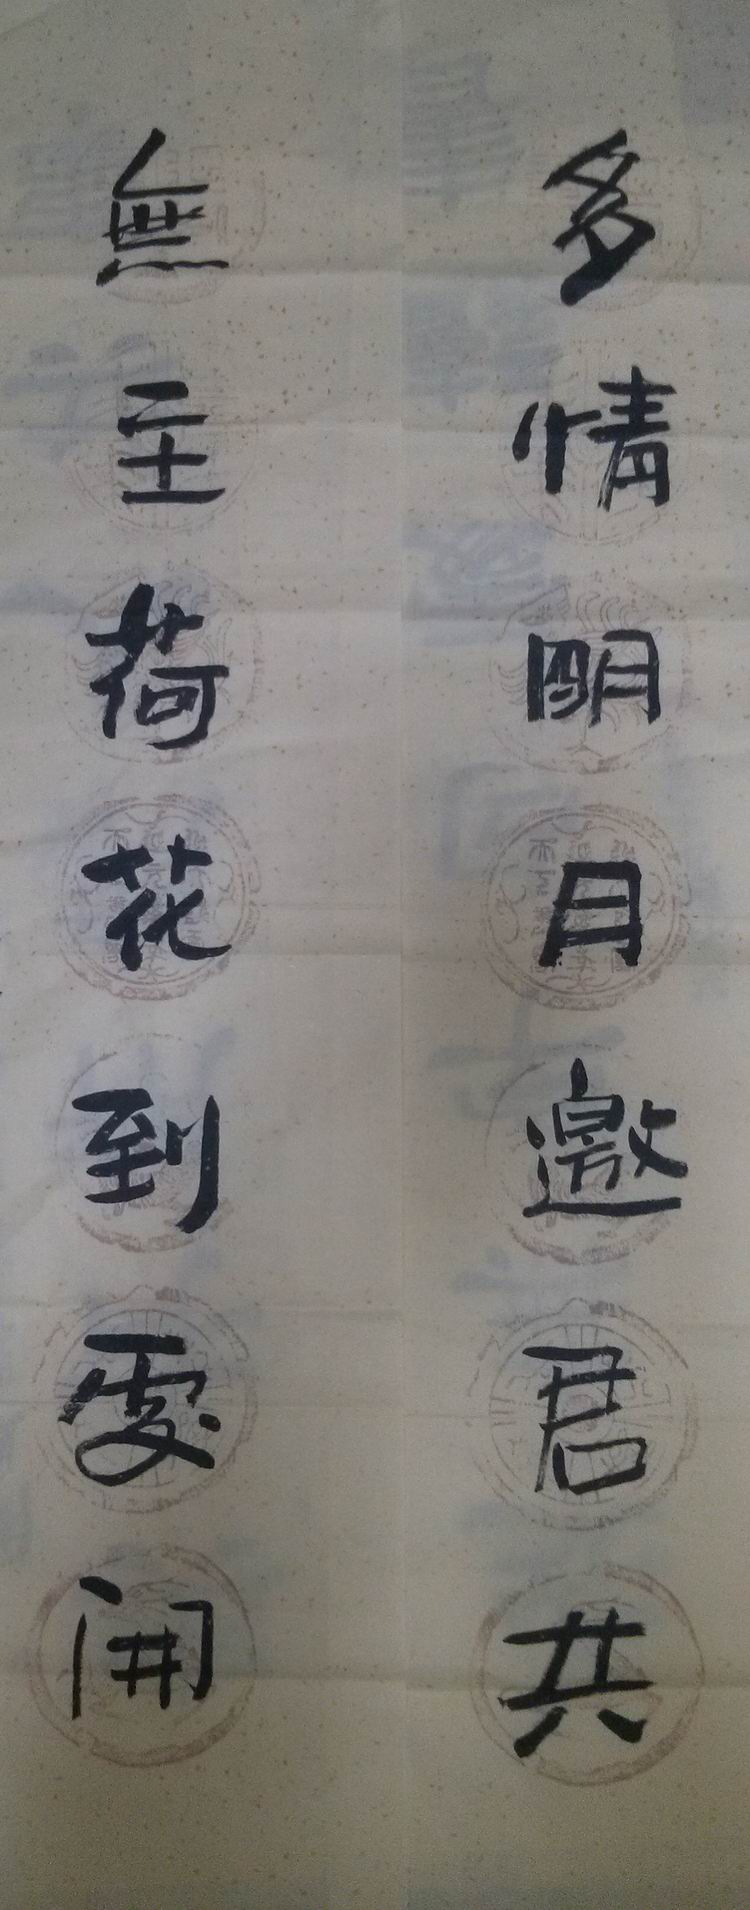 多情明月邀君共
無主荷花到處開